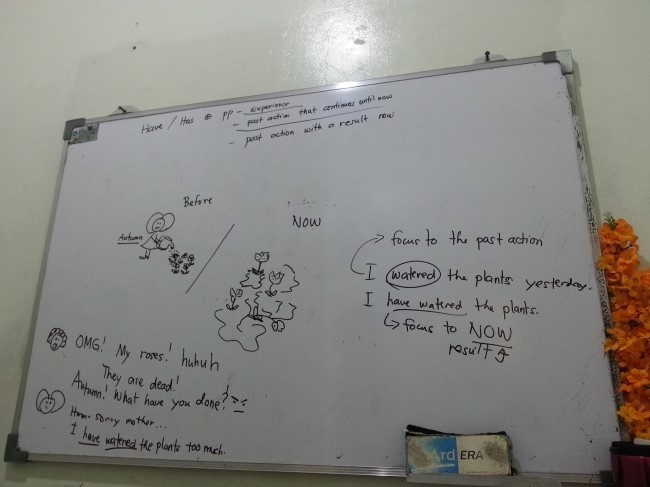 Have / Has ⊕ pp - Experience
- past action that continues until now
- past action with a result now
Before
Now
Autumn
focus to the past action
I watered the plants yesterday.
I have watered the plants.
focus to NOW
result
OMG! My roses! huhuh
They are dead!
Autumn! What have you done?
Hmm. sorry mother...
I have watered the plants too much.
ard ERA